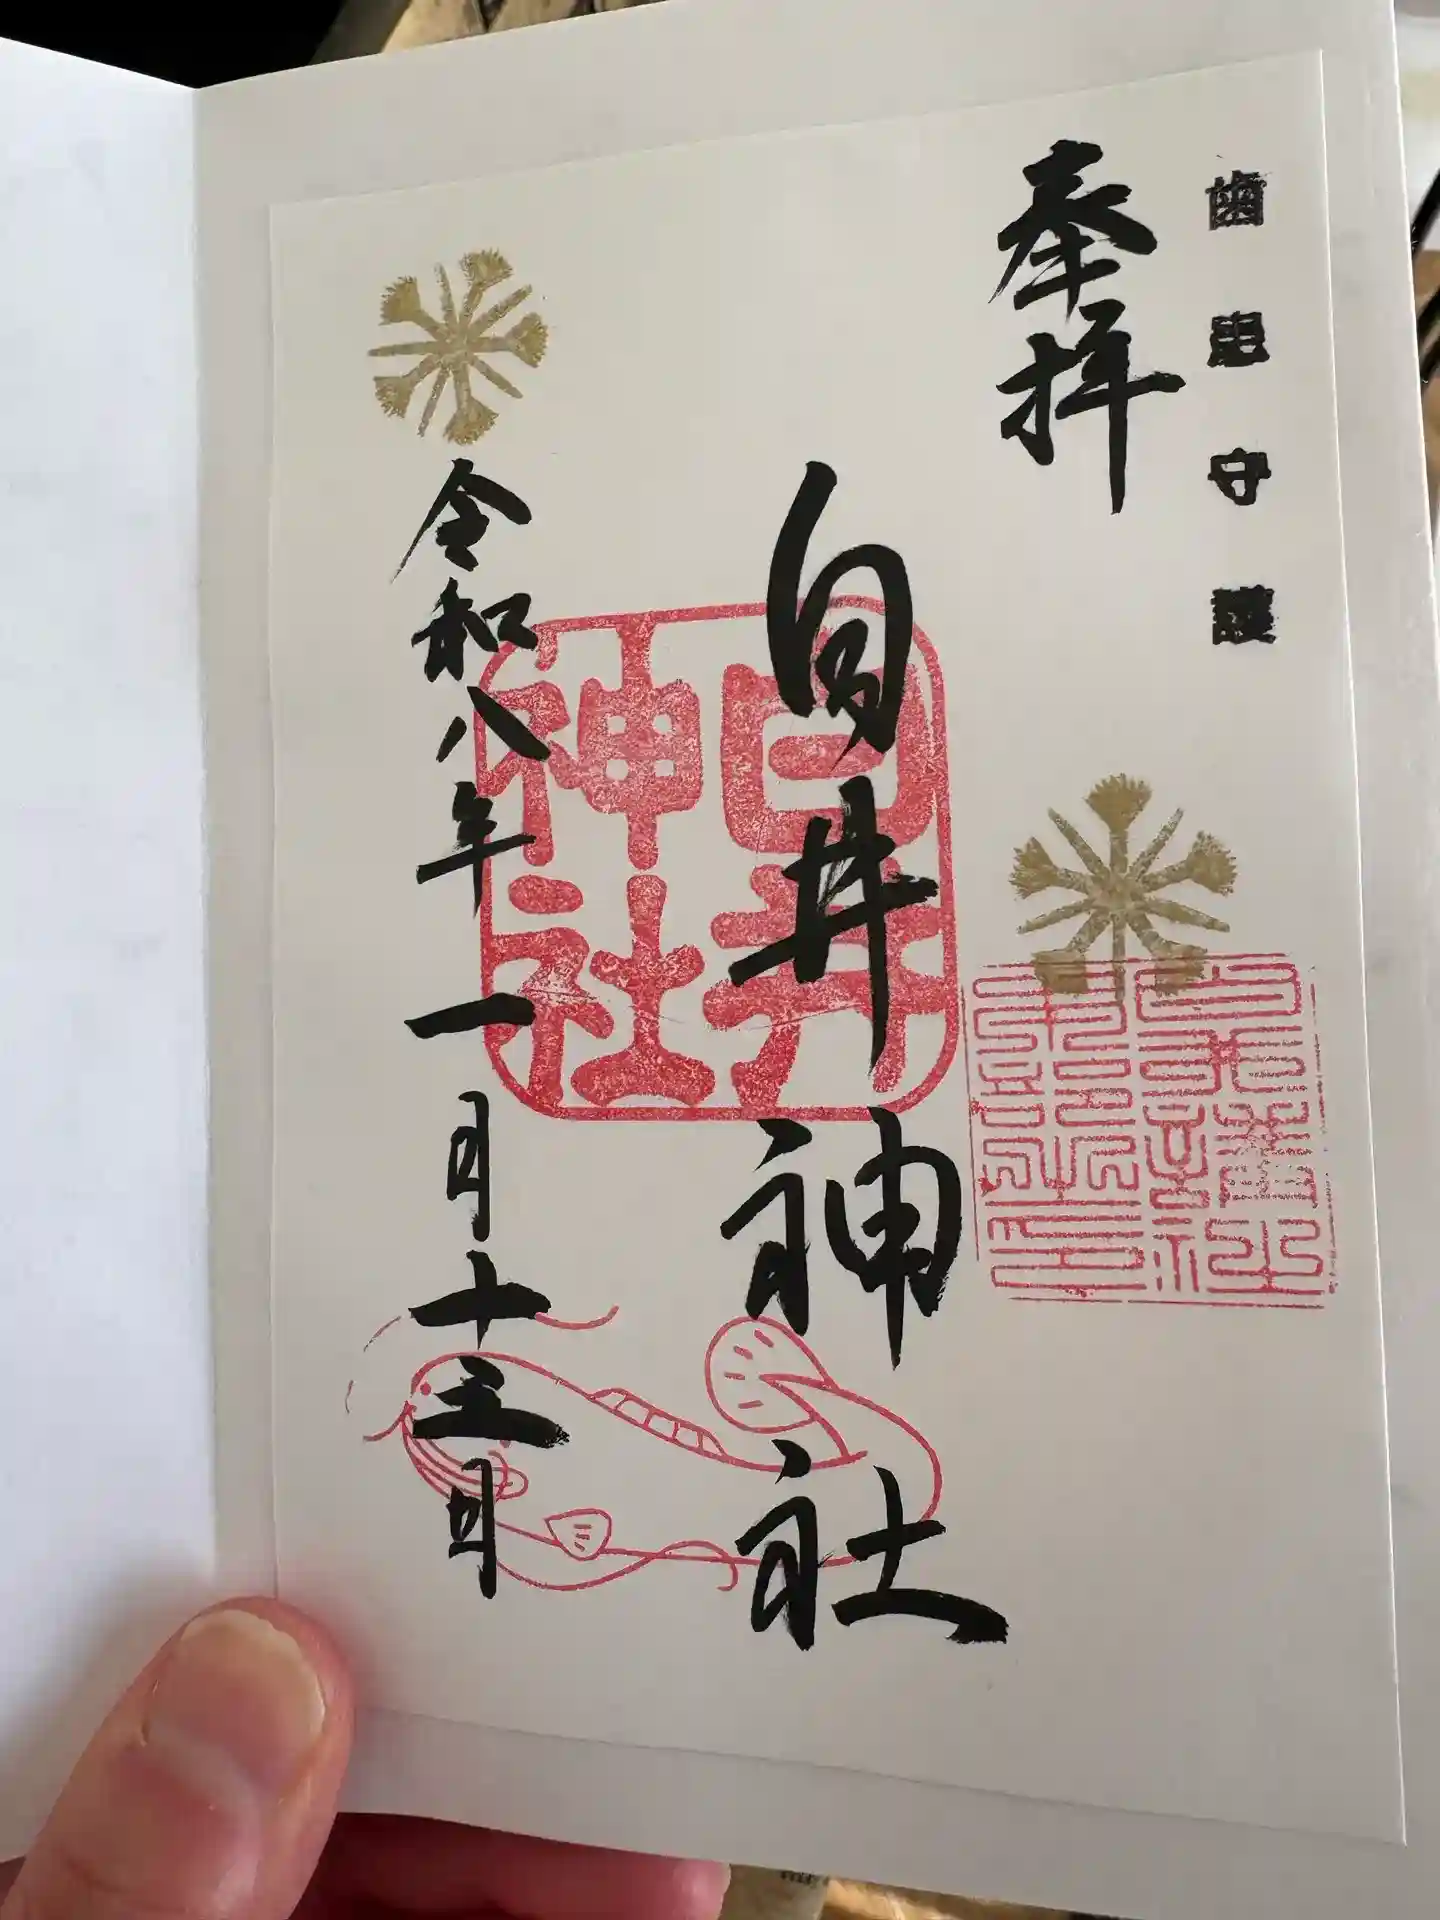 歯患守護
奉拝
白井神社
白井神社
令和八年一月十三日